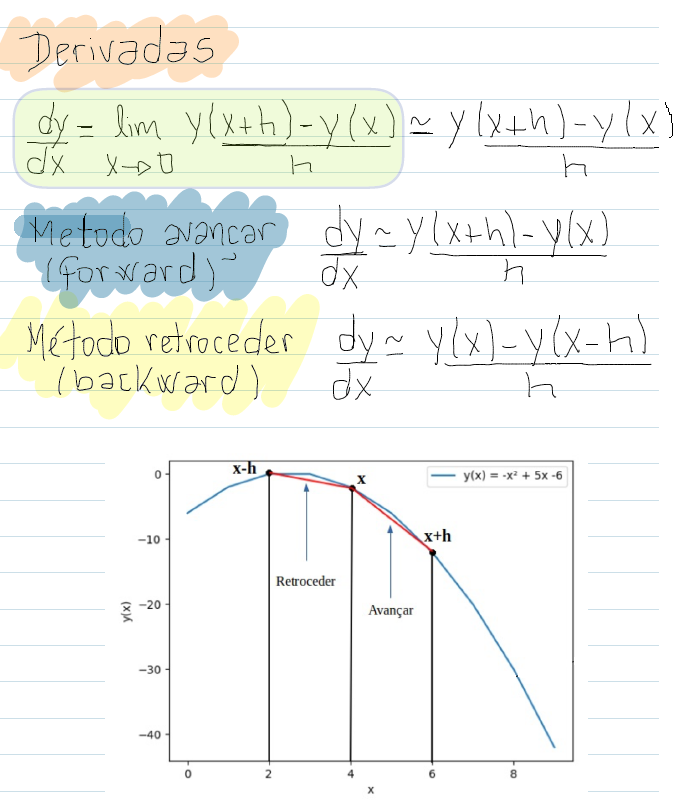 Derivadas
dy/dx = lim x→0 y(x+h)-y(x)/h ≃ y(x+h)-y(x)/h
Metodo avançar (forward) dy/dx ~ y(x+h)-y(x)/h
Método retroceder (backward) dy/dx ~ y(x)-y(x-h)/h
y(x) = -x² + 5x -6
x-h
x
x+h
Retroceder
Avançar
y(x)
0
−10
−20
−30
−40
0 2 4 6 8
x